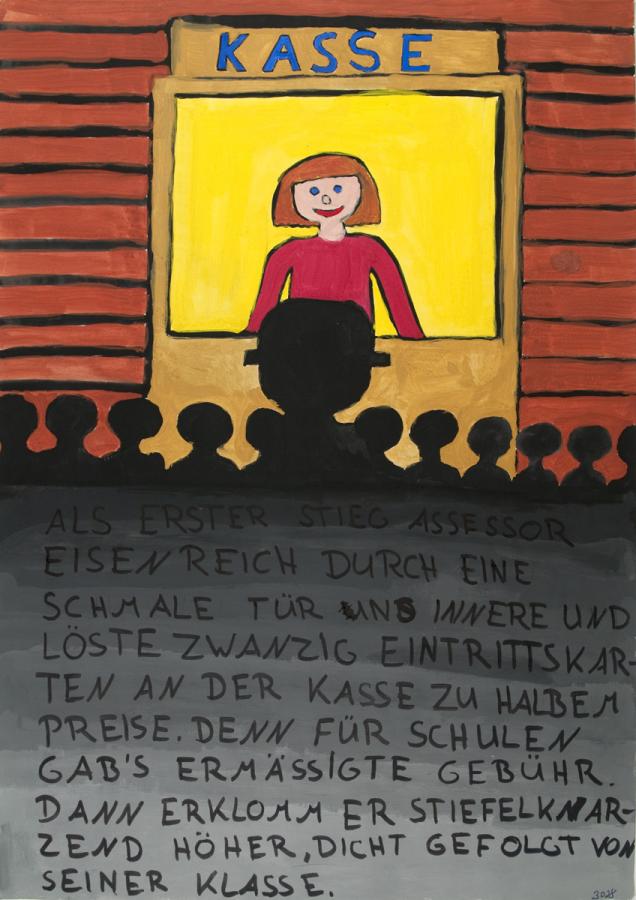 KASSE
ALS ERSTER STIEG ASSESSOR
EISENREICH DURCH EINE
SCHMALE TÜR UNS INNERE UND
LÖSTE ZWANZIG EINTRITTSKAR-
TEN AN DER KASSE ZU HALBEM
PREISE. DENN FÜR SCHULEN
GAB'S ERMÄSSIGTE GEBÜHR.
DANN ERKLOMM ER STIEFELKNAR-
ZEND HÖHER, DICHT GEFOLGT VON
SEINER KLASSE.
3028